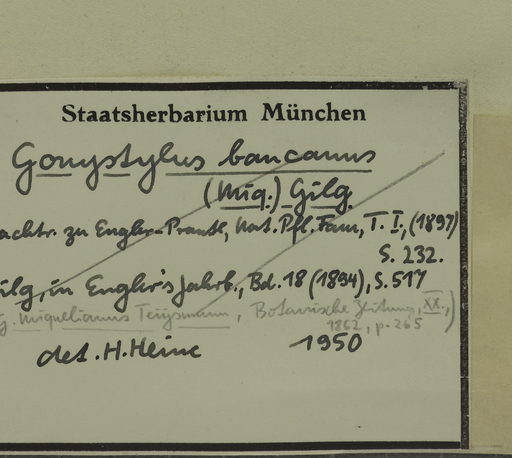 Staatsherbarium München
Gonystylus bancanus
(Miq.) Gilg
achtr. zu Engler-Prantl, Nat. Pfl. Fam., T. I., (1897)
S. 232.
ilg, in Engler's Jahrb., Bd. 18 (1894), S. 517
g. Miquelianus Teijsmann, Botanische Zeitung, XX.,)
1862, p. 265
det. H. Heine 1950